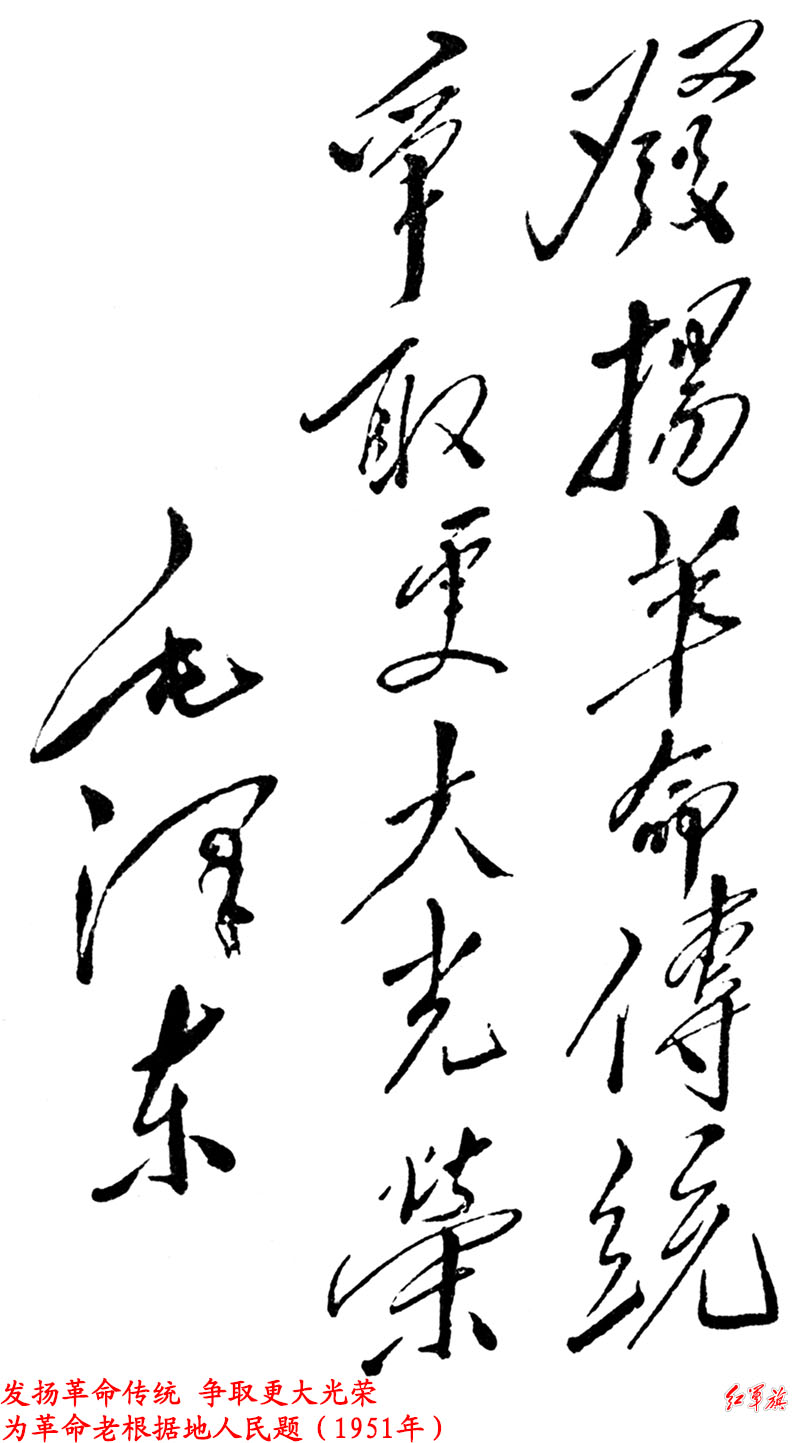 發揚革命傳統
爭取更大光榮
毛泽东
发扬革命传统 争取更大光荣
为革命老根据地人民题（1951年）
红军旗